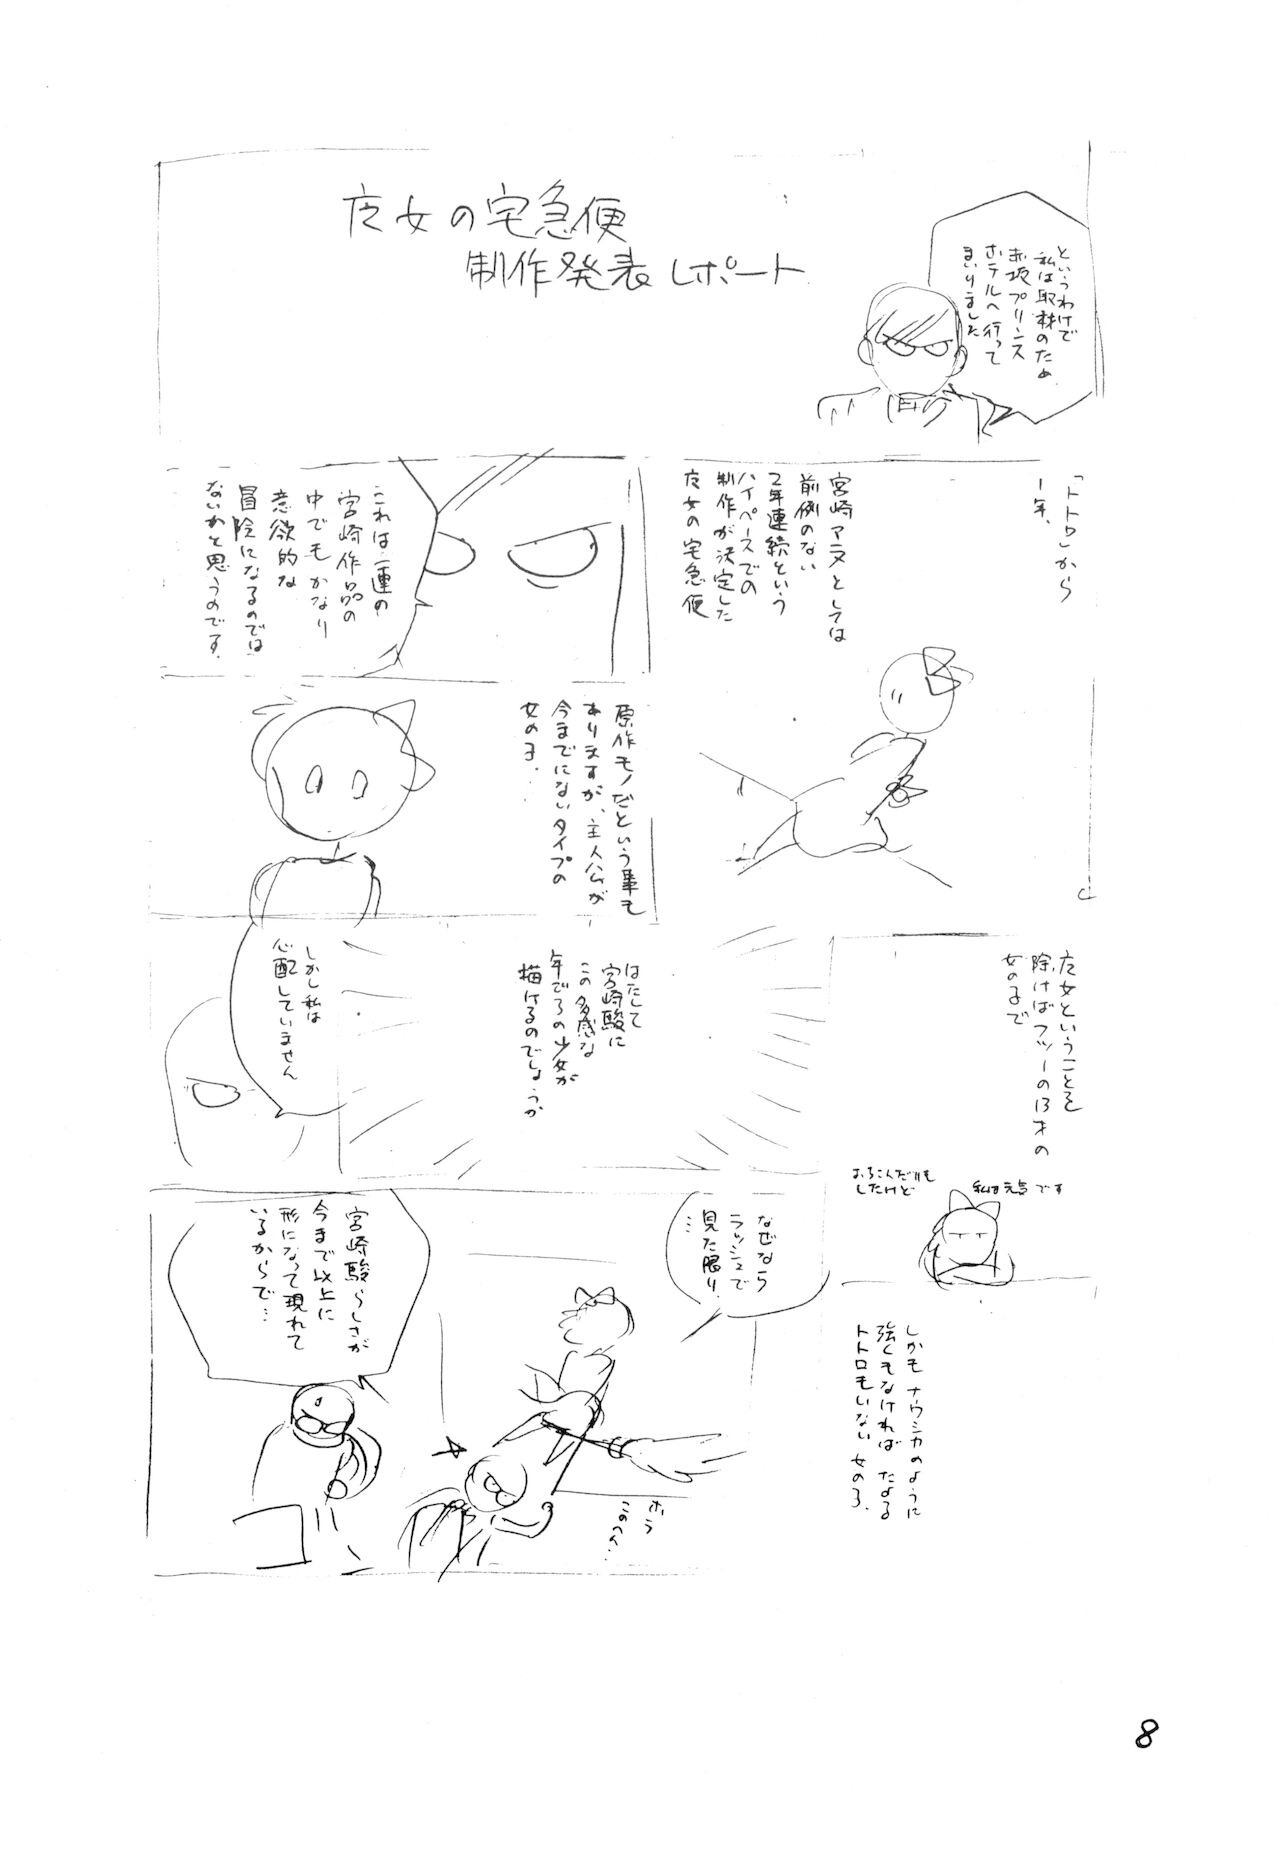 魔女の宅急便
制作発表レポート
というわけで
私は取材のため
赤坂プリンス
ホテルへ行って
まいりました
「トトロ」から
1年、
宮崎アニメとしては
前例のない
2年連続という
ハイペースでの
制作が決定した
魔女の宅急便
これは一連の
宮崎作品の
中でもかなり
意欲的な
冒険になるのでは
ないかと思うのです。
原作モノだという事も
ありますが、主人公が
今までにないタイプの
女の子。
魔女ということを
除けばフツーの13才の
女の子で
おちこんだりも
したけど
私は元気です
しかもナウシカのように
強くもなければ たよる
トトロもいない 女の子。
はたして
宮崎駿に
この多感な
年ごろの少女が
描けるのでしょうか
しかし私は
心配していません
なぜなら
ラッシュで
見た限り、
…
ホラ
このへん…
宮崎駿らしさが
今まで以上に
形になって現れて
いるからで…
8